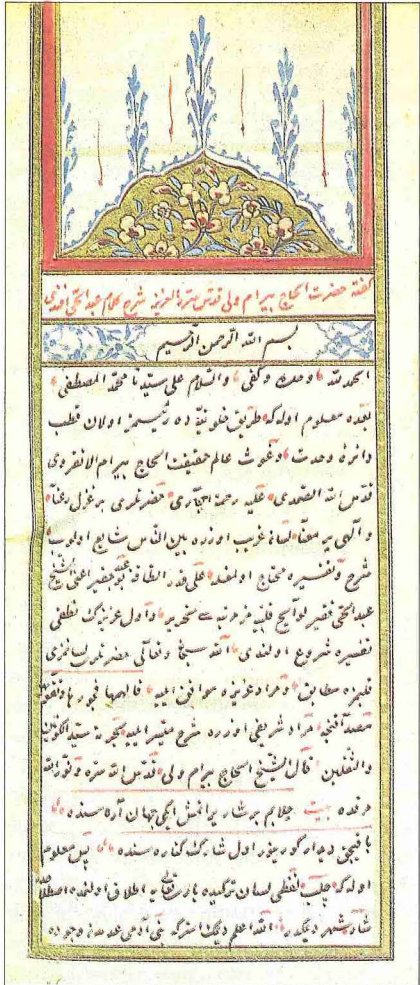 گفته حضرت الحاج بيرام ولى قدس سره العزيز شرح كلام عبد الحى افندى
بسم الله الرحمن الرحيم
الحمد لله وحده وكفى والسلام على سيدنا محمد المصطفى
بعده معلوم اوله كه طريق خلوتيه ده رئيسمز اولان قطب
دائرهٔ وحدت وغوث عالم حقيقت الحاج بيرام الانقروى
قدس الله الصمدى عليه رحمة البارى حضرتلرى بر غزل رعنا
و الهى پر معنا لسان غريب اوزره بين الناس شايع اولوب
شرح وتفسيره محتاج اولمغله على قدر الطاقه بو عبد حقير اعنى الشيخ
عبد الحى تحرير و اول عزيزك نطقى
تفسيره شروع اولندى الله سبحانه وتعالى حضرتلرى لسانمزى
قلبمزه مطابق و مراد عزيزه موافق ايليه
مراد شريفى اوزره شرح ميسر ايليه بحرمة سيد الكونين
والثقلين قال الشيخ الحاج بيرام ولى قدس الله سره و نور الله
مرقده بيت چلابم بر شار يراتمش ايكى جهان آره سنده
باقيجق ديدار كورينور اول شارك كناره سنده پس معلوم
اوله كه چلب لفظى لسان تركيده بارى تعالى يه اطلاق اولنور
شار شهر ديمكدر الله اعلم ديمك استر كه بنى آدمى عدمدن وجوده